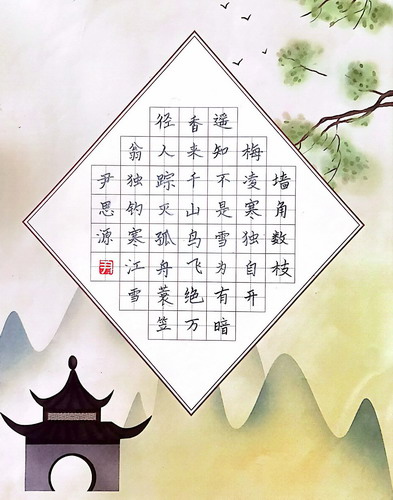 墙角数枝
梅凌寒独自开
遥知不是雪为有暗
香来千山鸟飞绝万
径人踪灭孤舟蓑笠
翁独钓寒江雪
尹思源
尹